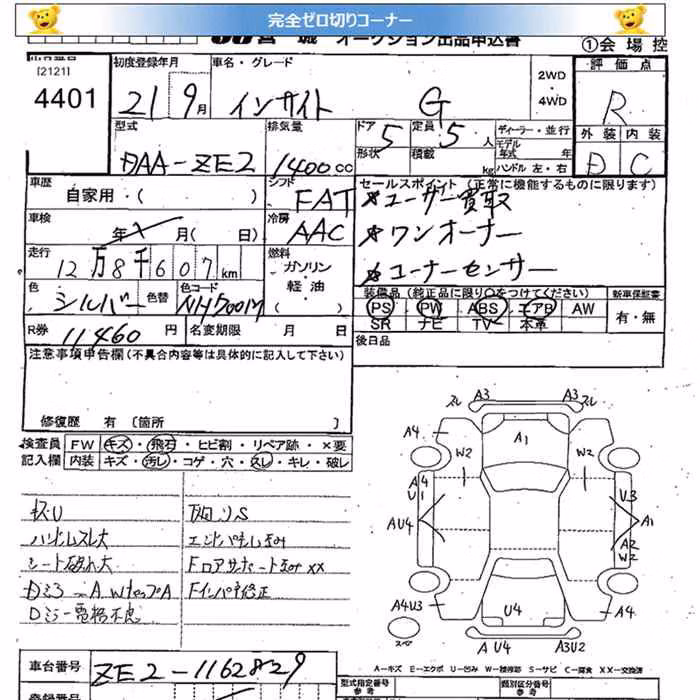 完全ゼロ切りコーナー
オークション出品申込書
①会場控
[2121]
4401
初度登録年月
21 9月
車名・グレード
インサイト G
2WD
・
4WD
評価点
R
外装 内装
D C
型式
DAA-ZE2
排気量
1400cc
ドア 5
形状
定員 5人
積載 kg
ディーラー・並行
モデル年式 年
ハンドル 左・右
車歴
自家用・(
シフト
FAT
セールスポイント(正常に機能するものに限ります)
※ユーザー買取
※ワンオーナー
※コーナーセンサー
車検
年 月( 日)
冷房
AAC
走行
12万8千607km
燃料
ガソリン・
軽油・
( )
色
シルバー
色替
色コード
NH700M
装備品(純正品に限り○をつけてください)
PS PW ABS エアB AW
SR ナビ TV 本革
新車保証書
有・無
R券 11460円
名変期限 月 日
後日品
注意事項申告欄(不具合内容等は具体的に記入して下さい)
修復歴 有 [箇所 ]
検査員
記入欄
FW キズ・飛石・ヒビ割・リペア跡・×要
内装 キズ・汚レ・コゲ・穴・スレ・キレ・破レ
ハンドルスレ大
シート破れ大
Dミラー電格不良
スレ A3 A3 スレ
A4 A1 A4
W2 W2
A4
U1
U3
AU4
A1
A2
W2
A4U3 U4 A4
スペア
A U4 A3U2
A－キズ E－エクボ U－凹み W－補修跡 S－サビ C－腐食 XX－交換済
車台番号
ZE2-1162829
型式指定番号
類別区分番号
登録番号
参考
参考